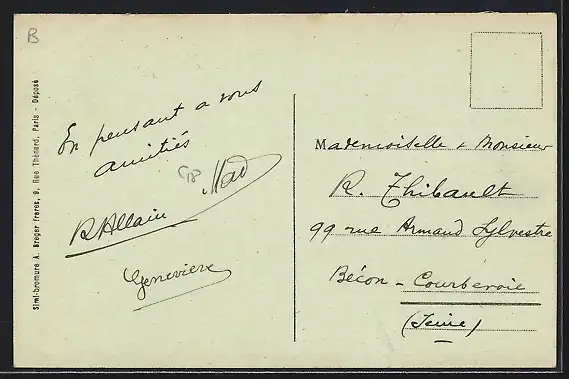 B
En pensant a vous
amitiés
Mad
R Allain
Geneviève
Simi-bromure A. Breger frères, 9, Rue Thénard, Paris - Déposé
Mademoiselle & Monsieur
R. Thibault
99 rue Armand Sylvestre
Bécon - Courbevoie
(Seine)